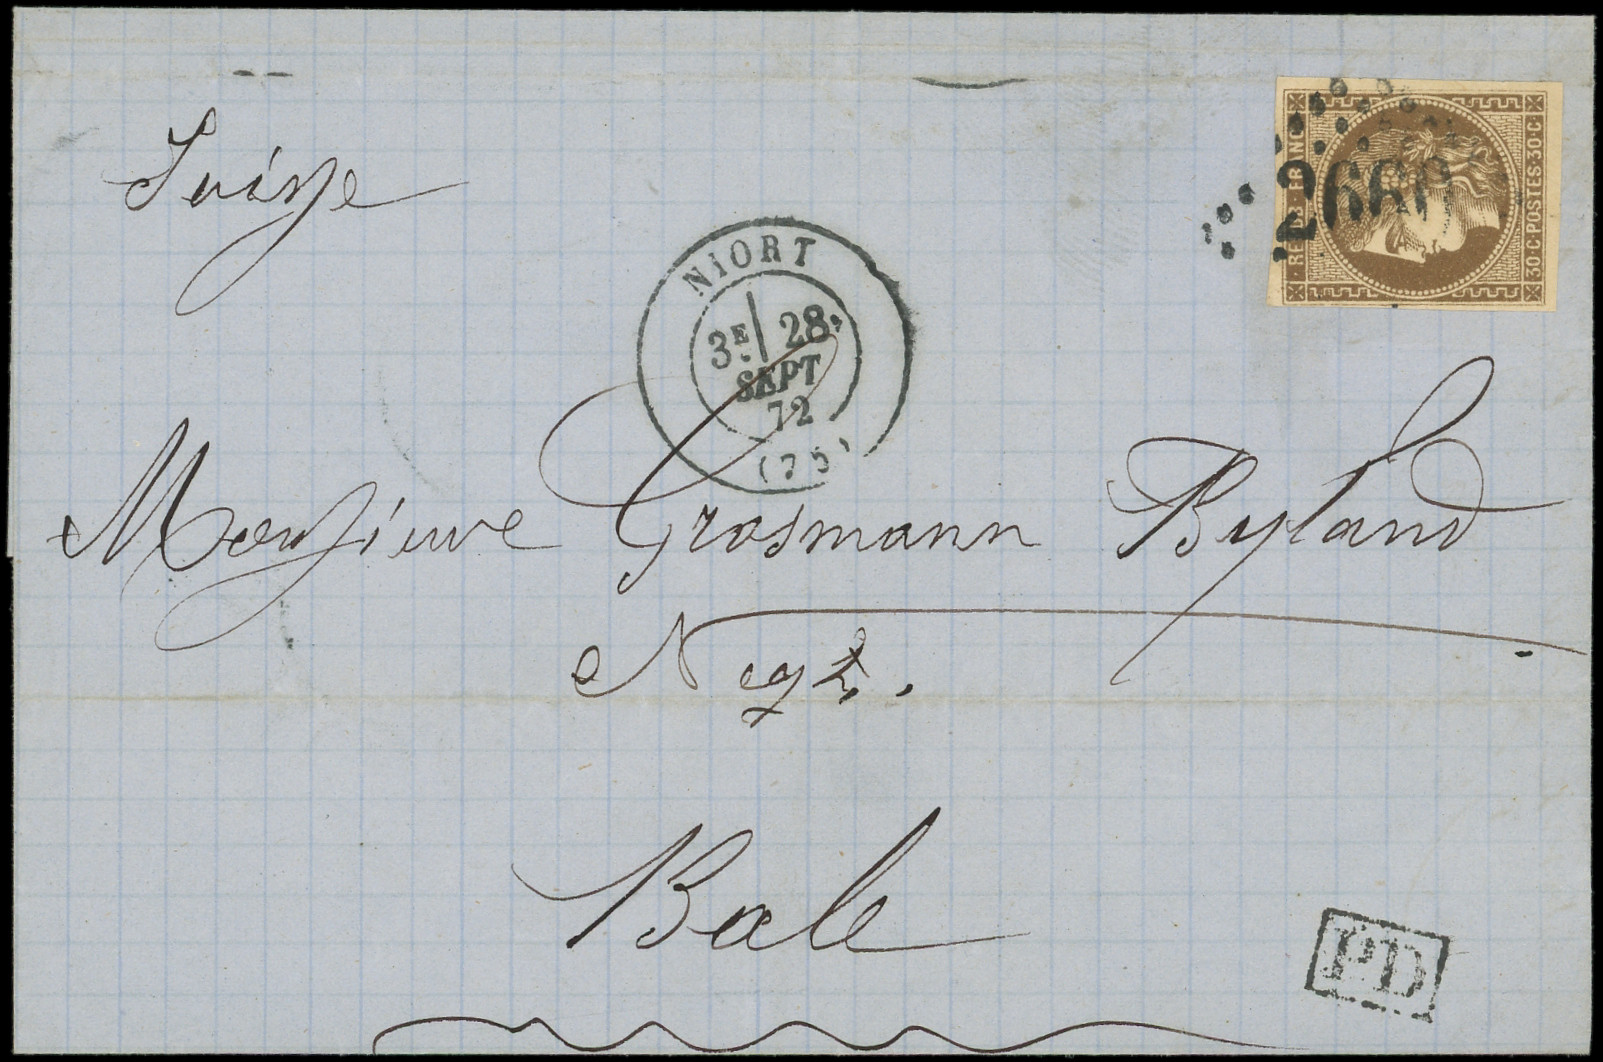 Suisse
REPUB · FRANC ·
30 · C · POSTES · 30 · C ·
2660
NIORT
3E 28
SEPT
72
(75)
Monsieur Grosmann Byland
Negt.
Bale
PD